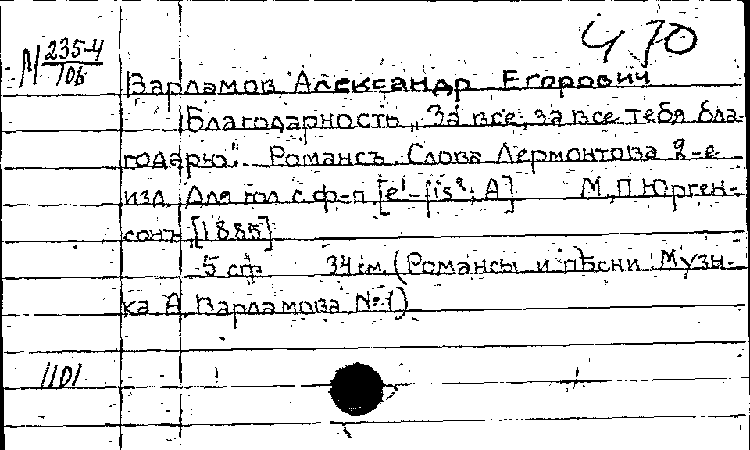 470
М 235-4
106
Варламов Александр Егорович
Благодарность „За все, за все тебя бла-
годарю". Романсъ. Слова Лермонтова 2-е
изд. Для гол. с ф-п [e¹-fis²; A] М., П. Юрген-
сонъ, [1885]
5 стр. 34 см. (Романсы и пѣсни. Музы-
ка А. Варламова № 1)
1101